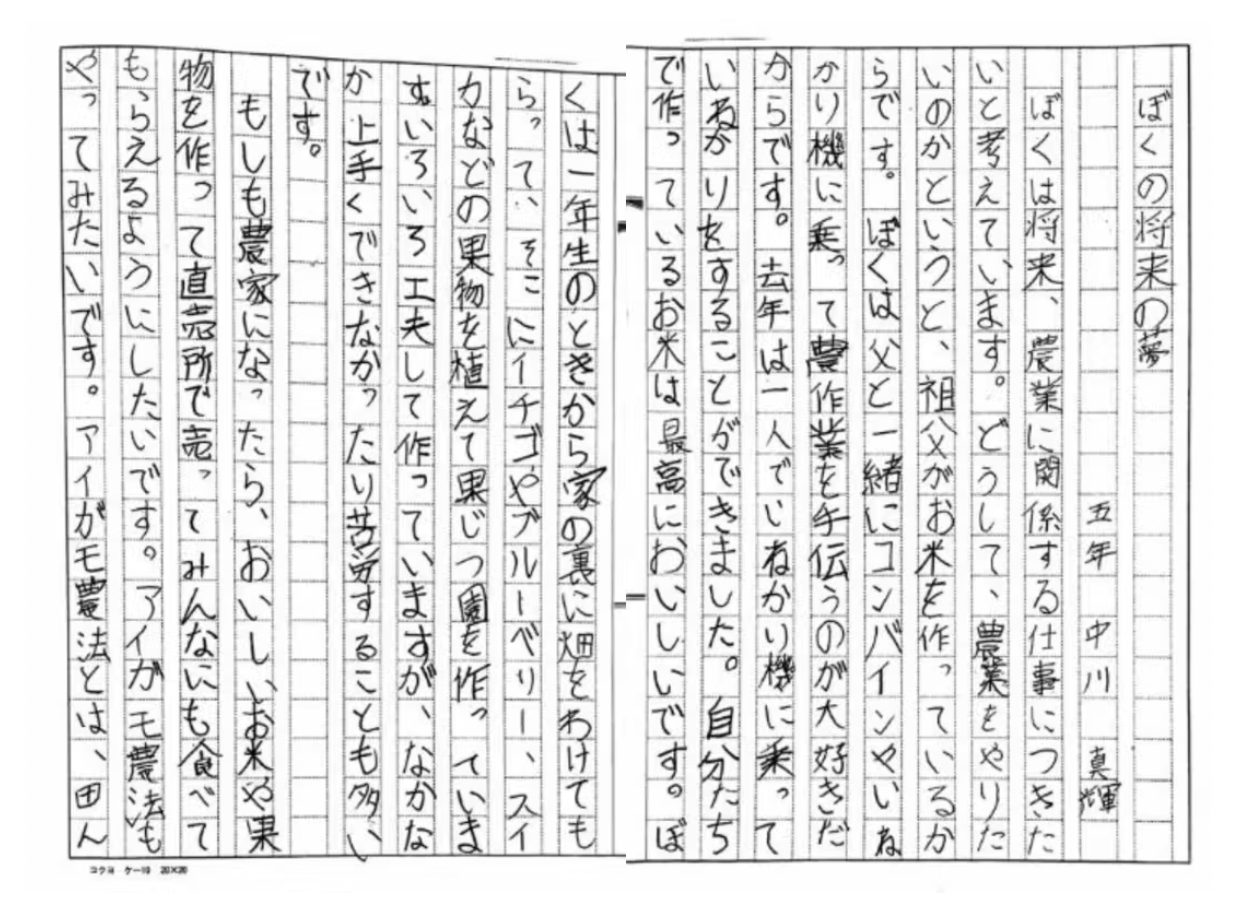 ぼくの将来の夢
五年 中川 真輝
ぼくは将来、農業に関係する仕事につきた
いと考えています。どうして、農業をやりた
いのかというと、祖父がお米を作っているか
らです。ぼくは父と一緒にコンバインやいね
かり機に乗って農作業を手伝うのが大好きだ
からです。去年は一人でいねかり機に乗って
いねかりをすることができました。自分たち
で作っているお米は最高においしいです。ぼ
くは一年生のときから家の裏に畑をわけても
らって、そこにイチゴやブルーベリー、スイ
カなどの果物を植えて果じつ園を作っていま
す。いろいろ工夫して作っていますが、なかな
か上手くできなかったり苦労することも多い
です。
もしも農家になったら、おいしいお米や果
物を作って直売所で売ってみんなにも食べて
もらえるようにしたいです。アイガモ農法も
やってみたいです。アイガモ農法とは、田ん
コクヨ ケー10 20×20